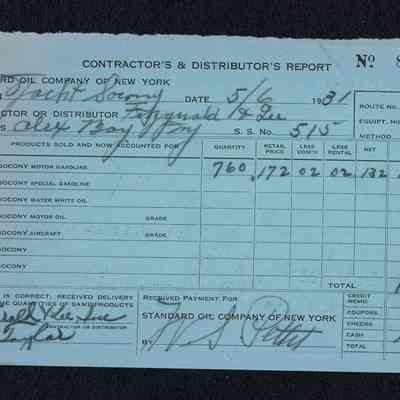 CONTRACTOR'S & DISTRIBUTOR'S REPORT Nº 8
ARD OIL COMPANY OF NEW YORK
Yacht Socony DATE 5/6 1931
ROUTE NO.
CTOR OR DISTRIBUTOR Fitzgerald & Lee
EQUIPT. NO.
S Alex Bay NY S. S. No. 515
METHOD
PRODUCTS SOLD AND NOW ACCOUNTED FOR QUANTITY RETAIL PRICE LESS COM'N LESS RENTAL NET
SOCONY MOTOR GASOLINE 760 .172 02 02 132
SOCONY SPECIAL GASOLINE
SOCONY WATER WHITE OIL
SOCONY MOTOR OIL GRADE
SOCONY AIRCRAFT GRADE
SOCONY
SOCONY
TOTAL
IS CORRECT; RECEIVED DELIVERY
QUANTITIES OF SAME PRODUCTS
Lee Inc
CONTRACTOR OR DISTRIBUTOR
Taylor
RECEIVED PAYMENT FOR
STANDARD OIL COMPANY OF NEW YORK
BY W S Pettit
CREDIT MEMO.
COUPONS
CHECKS
CASH
TOTAL